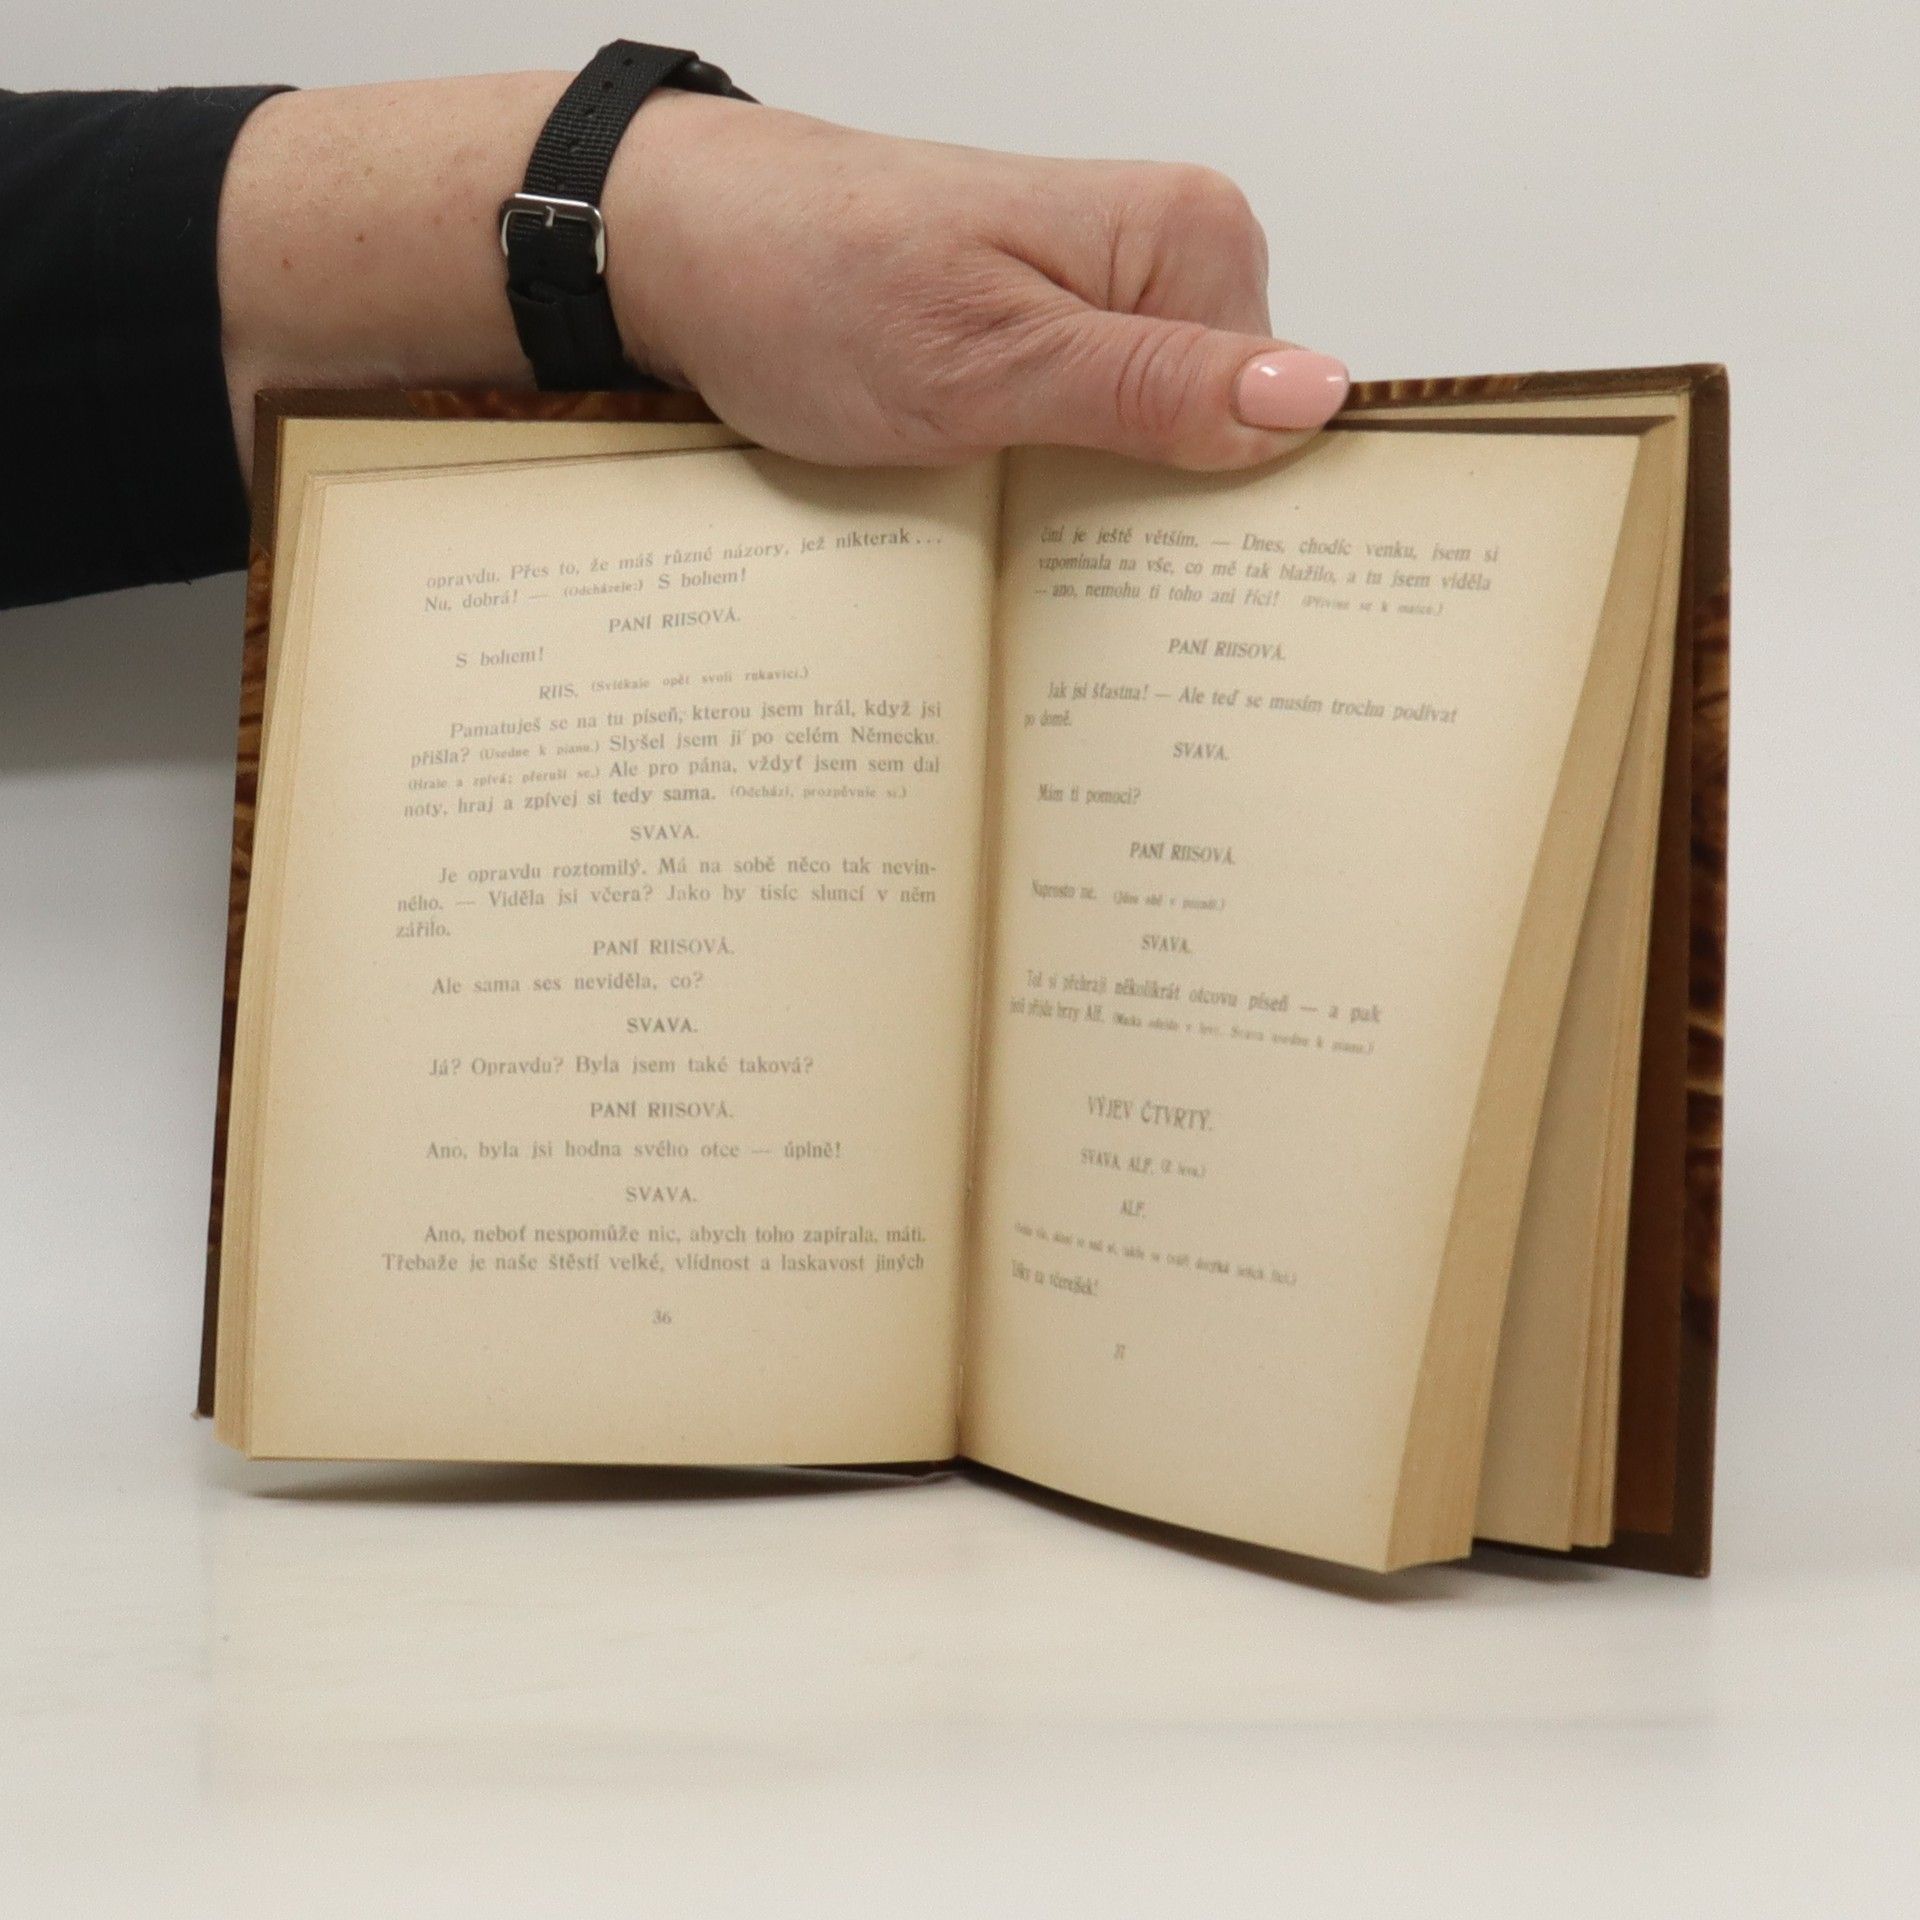 opravdu. Přes to, že máš různé názory, jež nikterak...
Nu, dobrá! — (Odcházeje:) S bohem!
PANÍ RIISOVÁ.
S bohem!
RIIS. (Svlékaje opět svoji rukavici.)
Pamatuješ se na tu píseň, kterou jsem hrál, když jsi
přišla? (Usedne k pianu.) Slyšel jsem ji po celém Německu.
(Hraje a zpívá; přeruší se.) Ale pro pána, vždyť jsem sem dal
noty, hraj a zpívej si tedy sama. (Odchází, prozpěvuje si.)
SVAVA.
Je opravdu roztomilý. Má na sobě něco tak nevin-
ného. — Viděla jsi včera? Jako by tisíc sluncí v něm
zářilo.
PANÍ RIISOVÁ.
Ale sama ses neviděla, co?
SVAVA.
Já? Opravdu? Byla jsem také taková?
PANÍ RIISOVÁ.
Ano, byla jsi hodna svého otce — úplně!
SVAVA.
Ano, neboť nespomůže nic, abych toho zapírala, máti.
Třebaže je naše štěstí velké, vlídnost a laskavost jiných
36
činí je ještě větším. — Dnes, chodíc venku, jsem si
vzpomínala na vše, co mě tak blažilo, a tu jsem viděla
— ano, nemohu ti toho ani říci! (Přivine se k matce.)
PANÍ RIISOVÁ.
Jak jsi šťastna! — Ale teď se musím trochu podívat
po domě.
SVAVA.
Mám ti pomoci?
PANÍ RIISOVÁ.
Naprosto ne.
SVAVA.
si přehraji několikrát otcovu píseň — a pak
přijde brzy Alf. (Matka odejde v levo, Svava usedne k pianu.)
VÝJEV ČTVRTÝ.
SVAVA, ALF. (Z leva.)
ALF.
Díky za včerejšek!
37